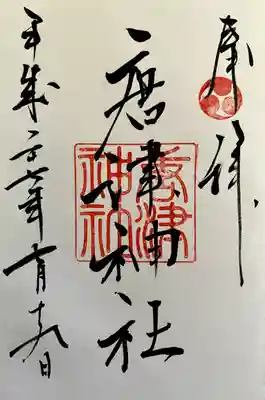 奉拝
唐津神社
唐津神社
平成二十七年十月日